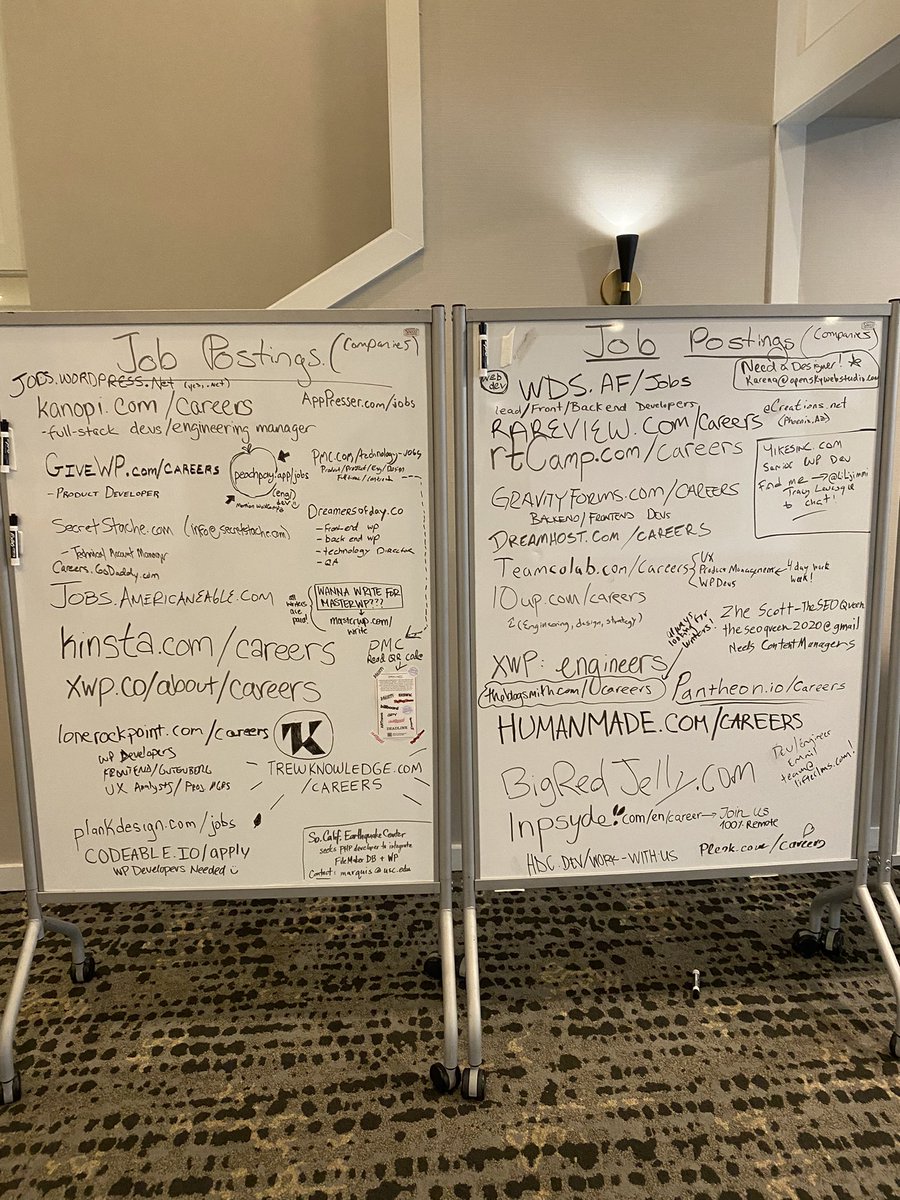 Job Postings. (Companies)
JOBS.WORDPRESS.Net (yes, .net)
kanopi.com/careers
-full-stack devs/engineering manager
AppPresser.com/jobs
GIVEWP.com/CAREERS
- PRODUCT DEVELOPER
peachpay.app/jobs
(eng/
dev)
PMC.com/technology-jobs
Product/Project/Eng/Design
Full time/
Dreamersofday.co
- front-end wp
- back end wp
- technology Director
- QA
SecretStache.com (info@secretstache.com)
- Technical Account Manager
Careers.GoDaddy.com
JOBS.AMERICANEAGLE.COM
all writers are paid!
WANNA WRITE FOR
MASTERWP???
masterwp.com/
write
PMC
Read QR code
Kinsta.com/careers
XWP.co/about/careers
lonerockpoint.com/careers
WP Developers
FRONTEND/GUTENBERG
UX Analysts/Proj MGRS
TK
TREWKNOWLEDGE.COM
/CAREERS
plankdesign.com/jobs
CODEABLE.IO/apply
WP Developers Needed
So. Calif. Earthquake Center
seeks PHP developer to integrate
FileMaker DB + WP
Contact: marquis@usc.edu
Job Postings (Companies)
Web dev
WDS.AF/Jobs
Need a Designer!
Karena@openskywebstudio.com
Lead/Front/Backend Developers
RAREVIEW.COM/Careers
eCreations.net
(Phoenix, AZ)
rtCamp.com/Careers
YIKESINC.COM
Senior WP Dev
find me → @Liljimmi
Tracy Levesque
to chat!
GRAVITYFORMS.COM/CAREERS
BACKEND/FRONTEND DEVS
DREAMHOST.COM/CAREERS
Teamcolab.com/Careers
UX
Product Management
WP Devs
4 day work
week!
10up.com/careers
(Engineering, design, strategy)
always looking for
writers!
Zhe Scott-TheSEOQueen
theseoqueen.2020@gmail
Needs Content Managers
XWP: engineers
theblogsmith.com/careers
Pantheon.io/Careers
HUMANMADE.COM/CAREERS
BigRedJelly.com
Dev/Engineer
Email
team@
liftedlms.com!
Inpsyde.com/en/career → Join us
100% Remote
HDC.DEV/WORK-WITH-US
Plesk.com/careers